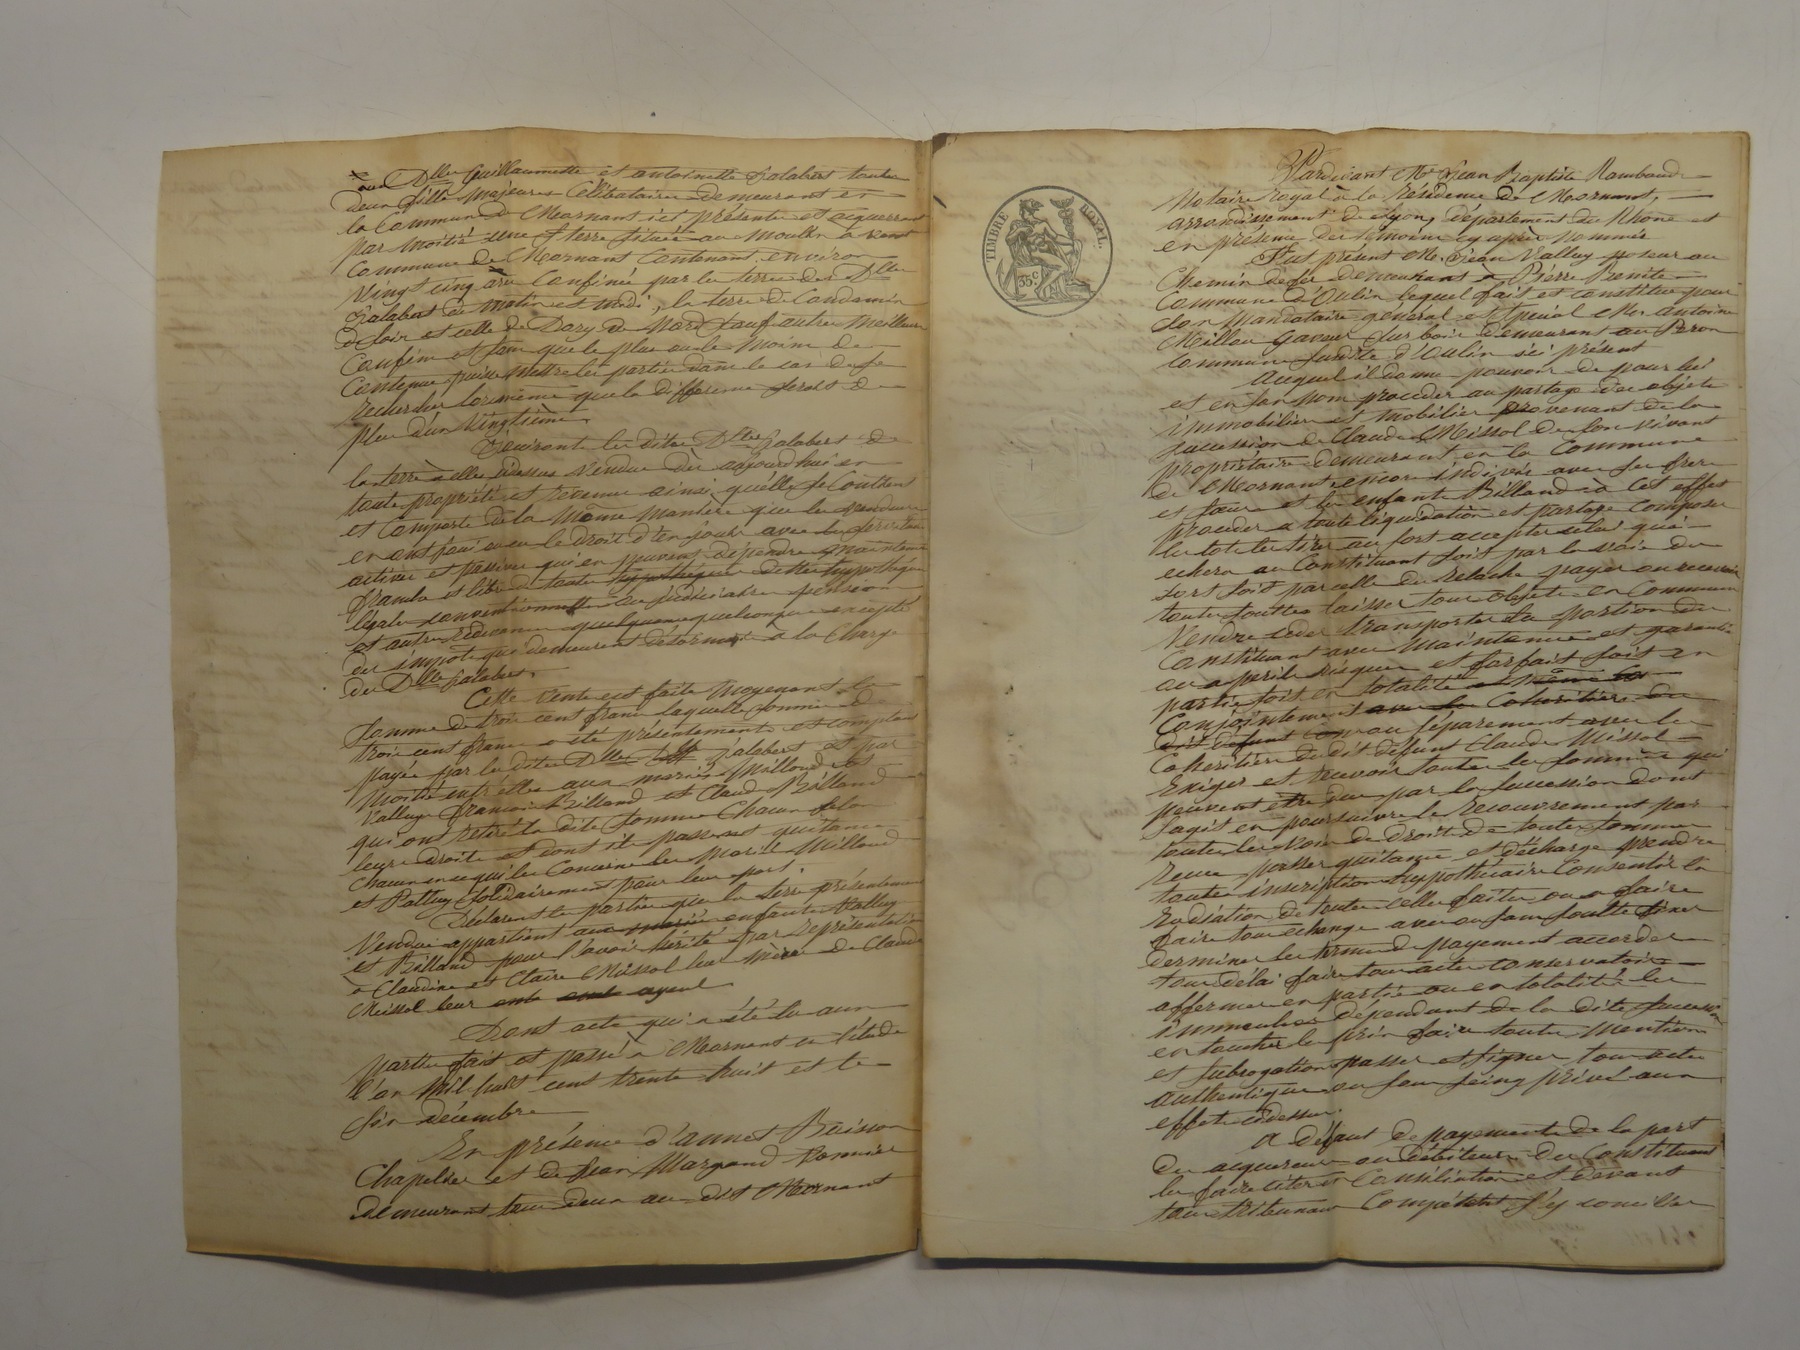 aux Dlles Guillaumette et antoinette Jalabert toutes
deux filles Majeures Célibataires demeurant en
la Commune de Mornant ici présentes et acquerrant
par moitié une terre située au Moulin à vent
Commune de Mornant Contenant environ
Vingt cinq ares Confinée par la terre des Dlles
Jalabert de matin et midi, la terre de Condamin
de soir et celle de Dory de Nord sauf autres Meilleurs
Confins et sans que le plus ou le moins de
Contenue puisse Mettre les parties dans le cas de se
rechercher lors même que la différence serait de
plus d'un Vingtième.
Jouiront les dites Dlles Jalabert de
la terre à elles dessus Vendue dès aujourd'hui en
toute propriété et revenus ainsi qu'elle se Contient
et Comporte de la Même Manière que les vendeurs
en ont joui ou eu le droit d'en jouir avec les servitudes
actives et passives qui en peuvent dépendre maintenue
franche et libre de toutes hypothèques dettes hypothèques
légales conventionnelles ou judiciaires pension
et autres redevances quelconques excepté
des impots qui demeurent désormais à la Charge
des Dlles Jalabert.
Cette vente est faite Moyenant la
Somme de trois cent francs laquelle somme de
trois cent francs a été présentement et comptant
payée par les dites Dlles Jalabert et par
Moitié entr'elles aux mariés Milloud et
Valluy François Billand et Claude Billand
qui ont retiré la dite Somme Chacun selon
leurs droits et dont ils passent quitance
Chacun en ce qui les Concerne les Mariés Milloud
et Valluy solidairement pour leur part.
Déclarent les parties que la terre présentement
Vendue appartient aux mariés enfants Valluy
et Billand pour l'avoir hérité par représentation
de Claudine et Claire Missol leur mères de Claude
Missol leur ayeul
Dont acte qui a été lu aux
parties fait et passé à Mornant en l'étude
l'an Mil huit cent trente huit et le
six décembre
En présence d'annet Buisson
Chapelier et de Jean Margand
demeurant tous deux au dit Mornant
TIMBRE ROYAL.
35 C
Pardevant Me Jean Baptiste Rambaud
Notaire royal à la Résidence de Mornant,
arrondissement de Lyon, département du Rhone et
en présence des témoins cy après nommés
Fut présent M. Jean Valluy poseur au
Chemin de fer demeurant à Pierre Benite
Commune d'Oulin lequel fait et constitue pour
son Mandataire général et spécial Mr. antoine
Millou graveur sur bois demeurant au Peron
Commune susdite d'Oulin ici présent
Auquel il donne pouvoir de pour lui
et en son nom procéder au partage des objets
immobiliers et mobiliers provenant de la
succession de Claude Missol de son vivant
propriétaire demeurant en la Commune
de Mornant encore indivis avec ses frere
et sœur et les enfants Billand à cet effet
procéder à toute liquidation et partage composer
les lots les tirer au sort accepter celui qui
echera au Constituant soit par la voie du
sort soit par celle du relache payer ou recevoir
toutes soultes laisser tous objets en Commun
Vendre ceder transporter la portion du
Constituant avec Maintenue et garantie
ou à perils risques et forfait soit en
partie soit en totalité
Conjointement avec les Coheritiers du
dit défunt ou séparement avec les
Coheritiers du dit défunt Claude Missol
Exiger et recevoir toutes les sommes qui
peuvent être dues par la succession dont
s'agit en poursuivre le Recouvrement par
toutes les voies de droit de toutes sommes
reçues passer quitance et décharge prendre
toute inscription hypothécaire Consentir la
radiation de toutes celles faites ou à faire
faire tous échanges avec ou sans soulte fixer
derminer les termes de payement accorder
tous délais faire tous actes conservatoires
affermer en partie ou en totalité les
immeubles dépendant de la dite succession
en toucher le prix faire toutes Mentions
et subrogations passer et signer tous actes
authentiques ou sous seing privé aux
effets cidessus.
A défaut de payements de la part
des acquereurs ou débiteurs du Constituant
les faire citer en Conciliation et devant
tous tribunaux Compétents s'y concilier